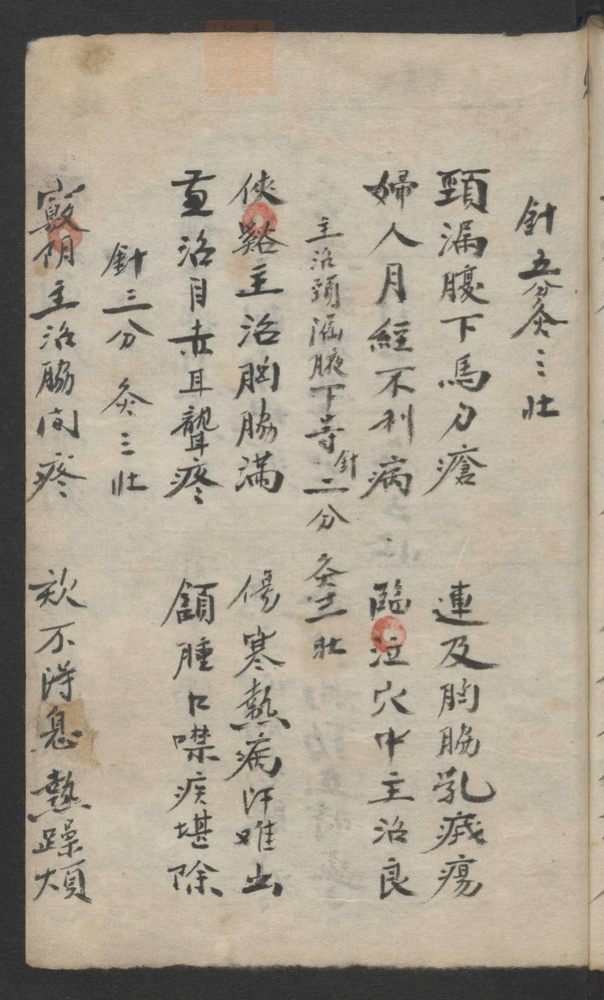 針五分灸三壯
頸漏腹下馬刀瘡　連及胸脇乳癰瘍
婦人月經不利病　臨泣穴中主治良
主治頸漏腋下等針二分灸三壯
俠谿主治胸脇滿　傷寒熱病汗难出
兼治目赤耳聾疼　頷腫口噤疾堪除
針三分灸三壯
竅阴主治脇间疼　欬不得息熱躁煩